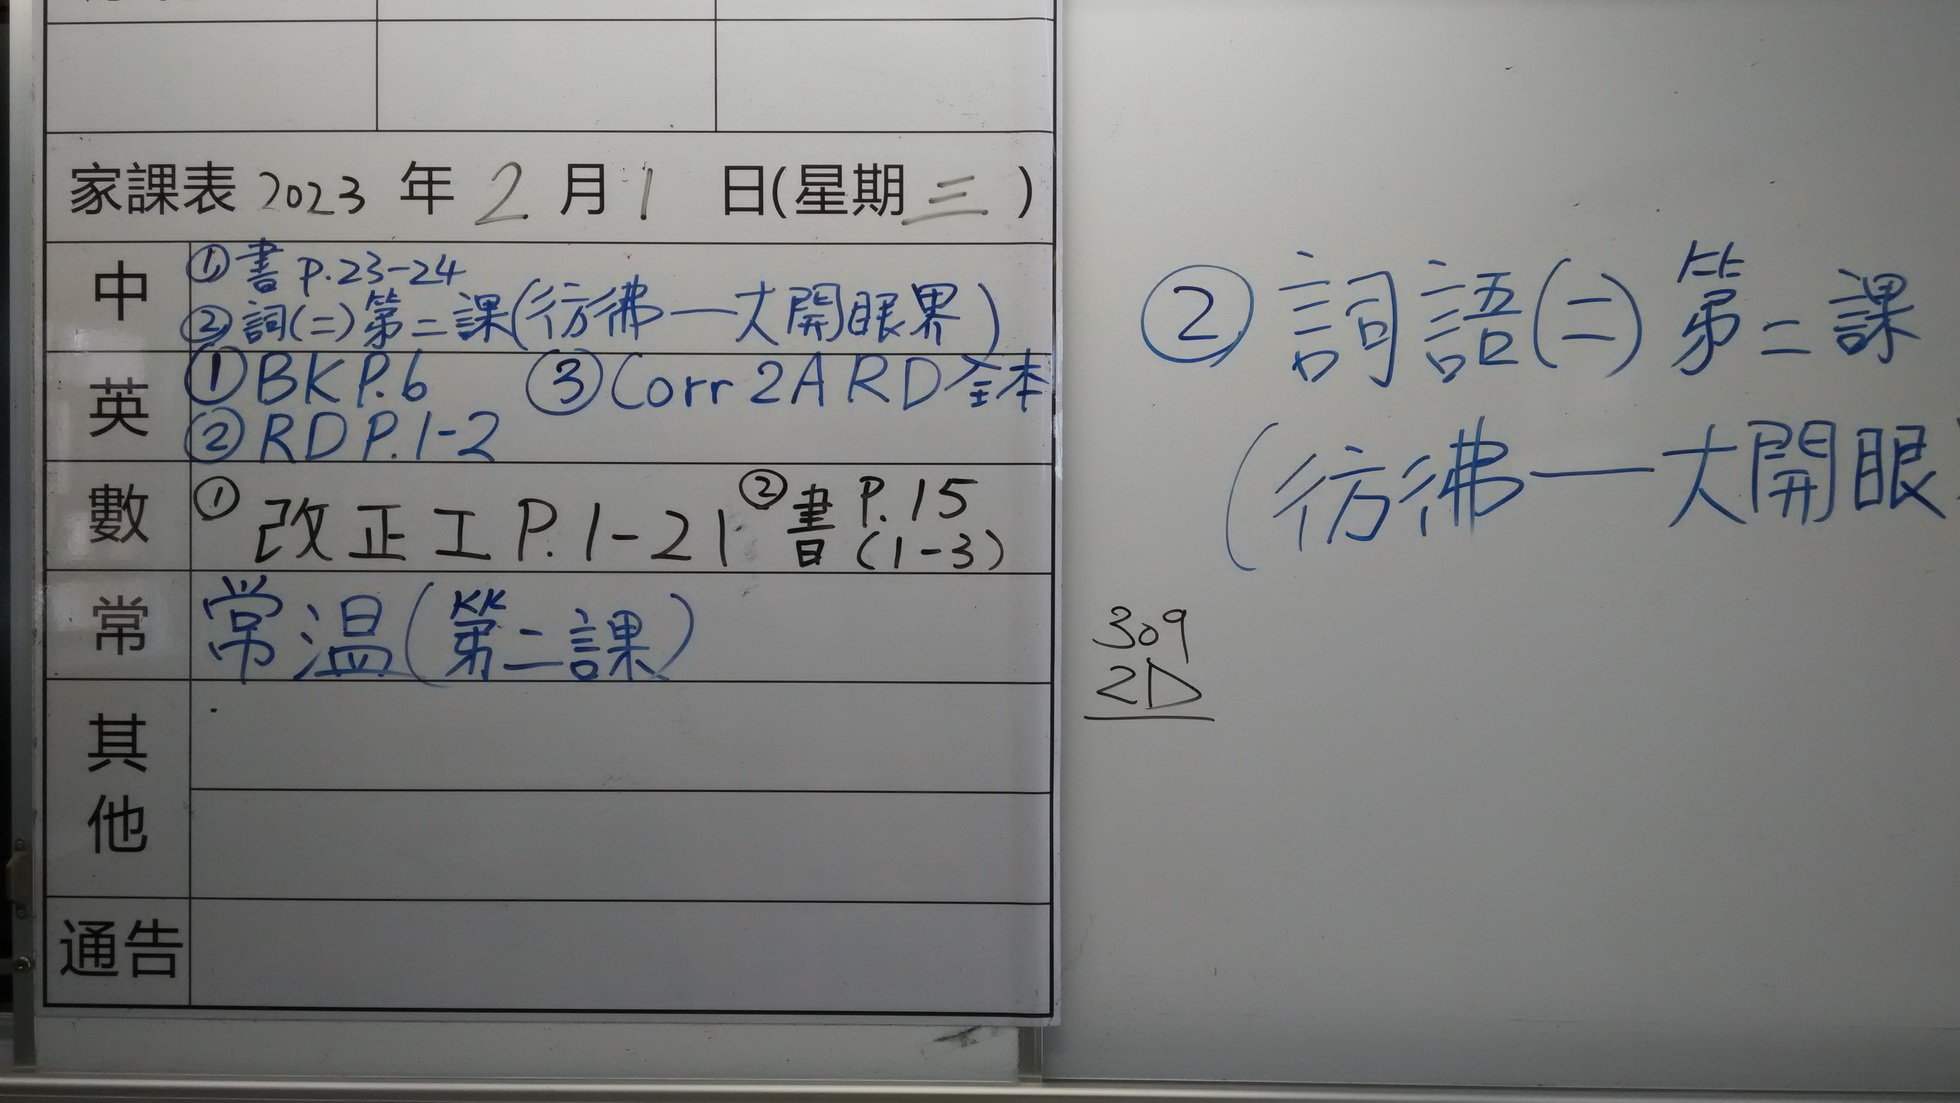 家課表 2023 年 2 月 1 日(星期三)
中
① 書 P.23-24
② 詞(二)第二課(彷彿—大開眼界)
英
① BK P.6 ③ Corr 2A RD 全本
② RD P.1-2
數
① 改正工 P.1-21 ② 書 P.15
(1-3)
常
常温(第二課)
其他
通告
② 詞語(二)第二課
(彷彿—大開眼
309
2D